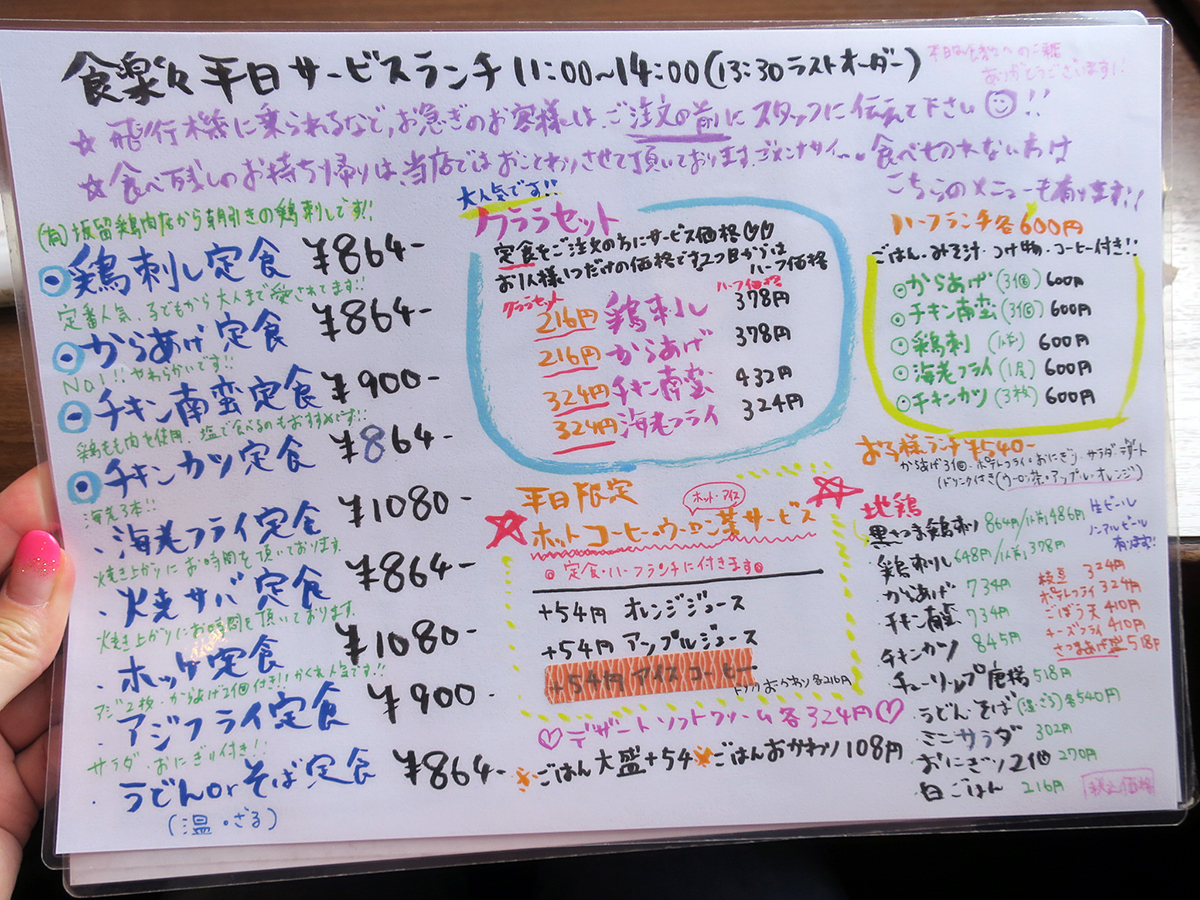 食楽々 平日サービスランチ 11:00~14:00(13:30ラストオーダー)
ありがとうございます!!
☆ 飛行機に乗られるなど、お急ぎのお客様は、ご注文の前にスタッフに伝えて下さい☺!!
☆ 食べ残しのお持ち帰りは、当店ではおことわりさせて頂いております。ゴメンナサイ
食べきれない方は
こちらのメニューも有ります!!
(有)坂留鶏肉店から朝引きの鶏刺しです!!
鶏刺し定食 ¥864-
定番人気、子どもから大人まで愛されてます!!
からあげ定食 ¥864-
NO1!!やわらかいです!!
チキン南蛮定食 ¥900-
鶏もも肉を使用、塩で食べるのもおすすめです!!
チキンカツ定食 ¥864-
海老3本!!
・海老フライ定食 ¥1080-
焼き上がりにお時間を頂いております。
・火焼サバ定食 ¥864-
焼き上がりにお時間を頂いております。
・ホッケ定食 ¥1080-
アジ2枚・からあげ2個付き!!かくれ人気です!!
・アジフライ定食 ¥900-
サラダ・おにぎり付き!!
・うどんorそば定食 ¥864-
(温・ざる)
大人気です!!
クララセット
定食をご注文の方にサービス価格♡♡
お1人様1つだけの価格です2つ目からは
ハーフ価格
クララセット ハーフ価格
216円 鶏刺し 378円
216円 からあげ 378円
324円 チキン南蛮 432円
324円 海老フライ 324円
平日限定
ホット・アイス
☆ホットコーヒー・ウーロン茶サービス☆
◎定食・ハーフランチに付きます◎
+54円 オレンジジュース
+54円 アップルジュース
+54円 アイスコーヒー
ドリンクおかわり各216円
♡デザートソフトクリーム各324円♡
ごはん大盛+54 ごはんおかわり108円
ハーフランチ各600円
ごはん・みそ汁・つけ物・コーヒー付き!!
◎からあげ(3個) 600円
◎チキン南蛮(3個) 600円
◎鶏刺 600円
◎海老フライ(1尾) 600円
◎チキンカツ(3枚) 600円
お子様ランチ¥540-
からあげ3個・ポテトフライ・おにぎり・サラダ・デザート
ドリンク付き(ウーロン茶・アップル・オレンジ)
地鶏
黒さつま鶏刺り 864円/ハーフ486円
鶏刺し 648円/ハーフ378円
からあげ 734円
チキン南蛮 734円
チキンカツ 845円
チューリップ唐揚 518円
うどん・そば(温・ざる)各540円
ミニサラダ 302円
おにぎり2個 270円
白ごはん 216円
生ビール
ノンアルビール
有ります!!
枝豆 324円
ポテトフライ 324円
ごぼう天 410円
チーズフライ 410円
さつまあげ盛 518円
税込価格